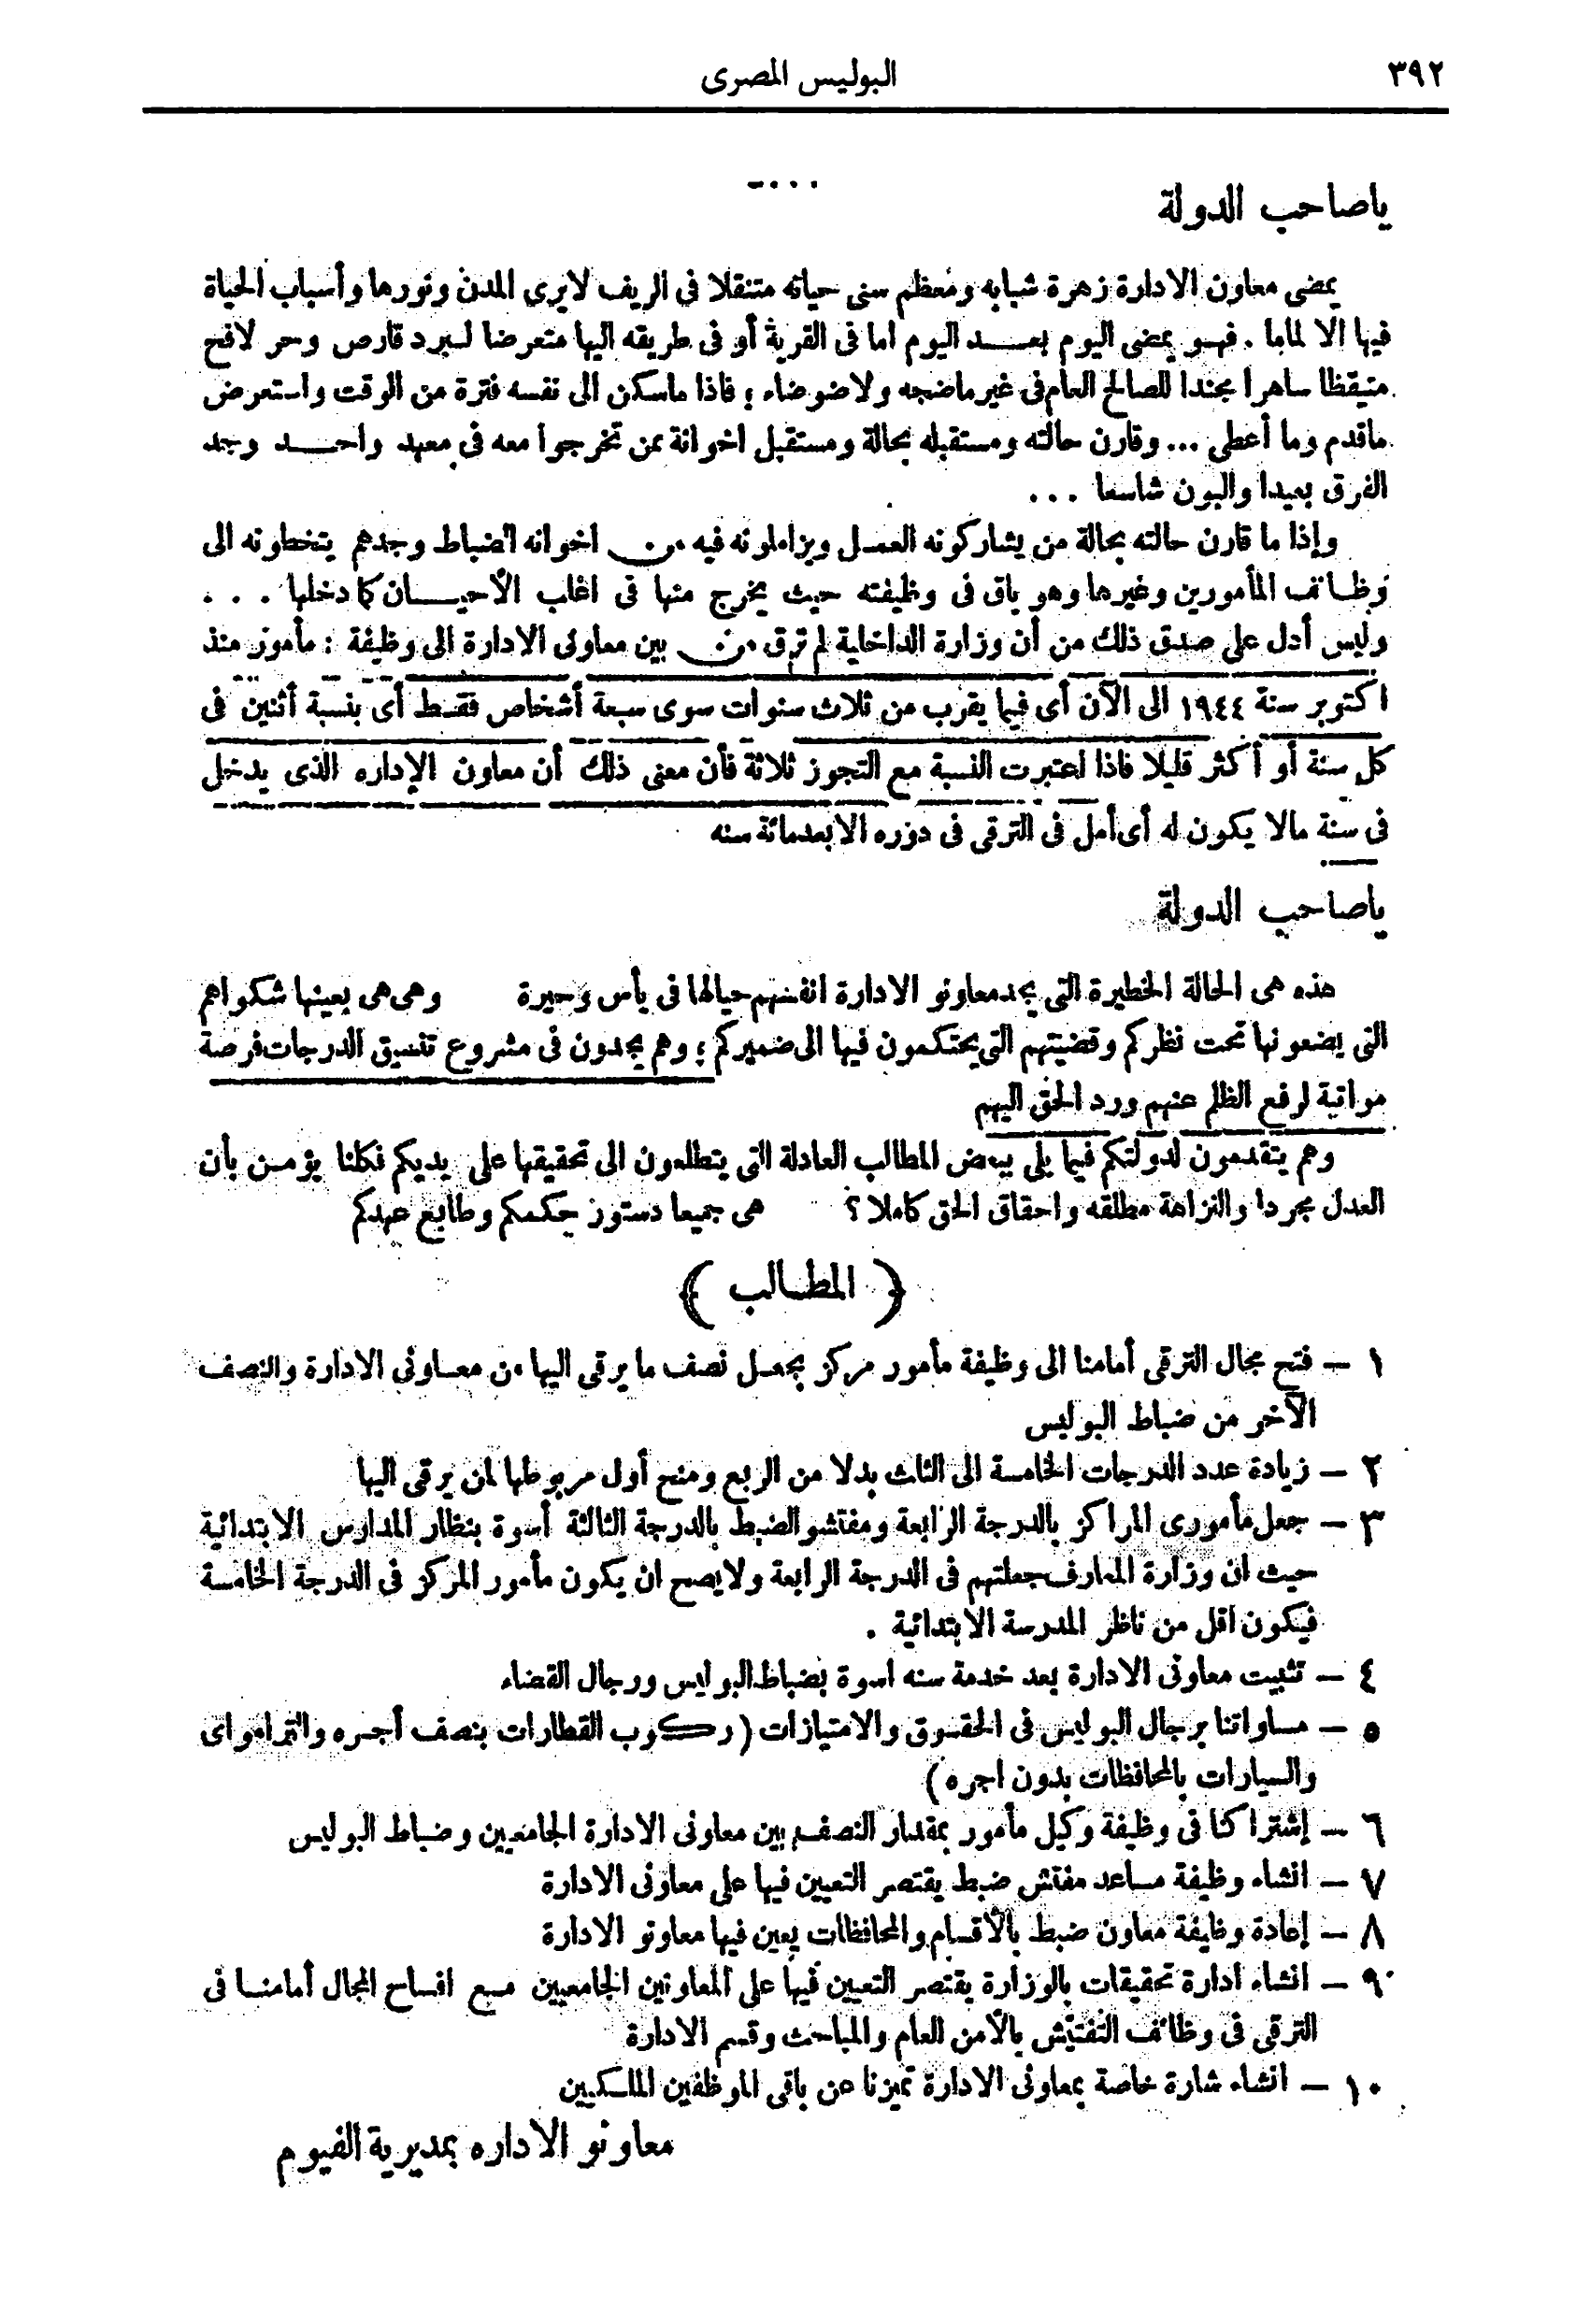 ٣٩٢
البوليس المصرى
ياصاحب الدولة
يمضى معاون الادارة زهرة شبابه ومعظم سنى حياته متنقلا فى الريف لايرى المدن ونورها وأسباب الحياة
فيها الا لماما . فهو يمضى اليوم بعد اليوم اما فى القرية أو فى طريقه اليها متعرضا لبرد قارص وحر لافح
متيقظا ساهرا مجندا للصالح العام فى غير ماضجه ولاضوضاء ؛ فاذا ماسكن الى نفسه فترة من الوقت واستعرض
ماقدم وما أعطى ... وقارن حالته ومستقبله بحالة ومستقبل اخوانة ممن تخرجوا معه فى معهد واحد وجد
الفرق بعيدا والبون شاسعا ...
وإذا ما قارن حالته بحالة من يشاركونه العمل ويزاملونه فيه من اخوانه الضباط وجدهم يتخطونه الى
وظائف المأمورين وغيرها وهو باق فى وظيفته حيث يخرج منها فى اغلب الأحيان كما دخلها . . .
وليس أدل على صدق ذلك من أن وزارة الداخلية لم ترق من بين معاونى الادارة الى وظيفة : مأمور منذ
اكتوبر سنة ١٩٤٤ الى الآن أى فيما يقرب من ثلاث سنوات سوى سبعة أشخاص فقط أى بنسبة أثنين فى
كل سنة أو أكثر قليلا فاذا اعتبرت النسبة مع التجوز ثلاثة فأن معنى ذلك أن معاون الإداره الذى يدخل
فى سنة مالا يكون له أى أمل فى الترقى فى دوره الا بعدمائة سنه
ياصاحب الدولة
هذه هى الحالة الخطيرة التى يجد معاونو الادارة انفسهم حيالها فى يأس وحيرة وهى هى بعينها شكواهم
التى يضعونها تحت نظركم وقضيتهم التى يحتكمون فيها الى ضميركم ؛ وهم يجدون فى مشروع تنسيق الدرجات فرصة
مواتية لرفع الظلم عنهم ورد الحق اليهم
وهم يتقدمون لدولتكم فيما يلى ببعض المطالب العادلة التى يتطلعون الى تحقيقها على يديكم فكلنا يؤمن بأن
العدل مجردا والنزاهة مطلقه واحقاق الحق كاملا ؟ هى جميعا دستور حكمكم وطابع عهدكم
( المطالب )
١ — فتح مجال الترقى أمامنا الى وظيفة مأمور مركز بجعل نصف ما يرقى اليها من معاونى الادارة والنصف
الآخر من ضباط البوليس
٢ — زيادة عدد الدرجات الخامسة الى الثلث بدلا من الربع ومنح أول مربوطها لمن يرقى اليها
٣ — جعل مأمورى المراكز بالدرجة الرابعة ومفتشو الضبط بالدرجة الثالثة أسوة بنظار المدارس الابتدائية
حيث ان وزارة المعارف جعلتهم فى الدرجة الرابعة ولايصح ان يكون مأمور المركز فى الدرجة الخامسة
فيكون اقل من ناظر المدرسة الابتدائية .
٤ — تثبيت معاونى الادارة بعد خدمة سنه اسوة بضباط البوليس ورجال القضاء
٥ — مساواتنا برجال البوليس فى الحقوق والامتيازات ( ركوب القطارات بنصف أجره والترامواى
والسيارات بالمحافظات بدون اجره )
٦ — إشتراكنا فى وظيفة وكيل مأمور بمقدار النصف بين معاونى الادارة الجامعيين وضباط البوليس
٧ — انشاء وظيفة مساعد مفتش ضبط يقتصر التعيين فيها على معاونى الادارة
٨ — إعادة وظيفة معاون ضبط بالأقسام والمحافظات يعين فيها معاونو الادارة
٩ — انشاء ادارة تحقيقات بالوزارة يقتصر التعيين فيها على المعاونين الجامعيين مع افساح المجال أمامنا فى
الترقى فى وظائف التفتيش بالأمن العام والمباحث وقسم الادارة
١٠ — انشاء شارة خاصة بمعاونى الادارة تميزنا عن باقى الموظفين الملكيين
معاونو الاداره بمديرية الفيوم